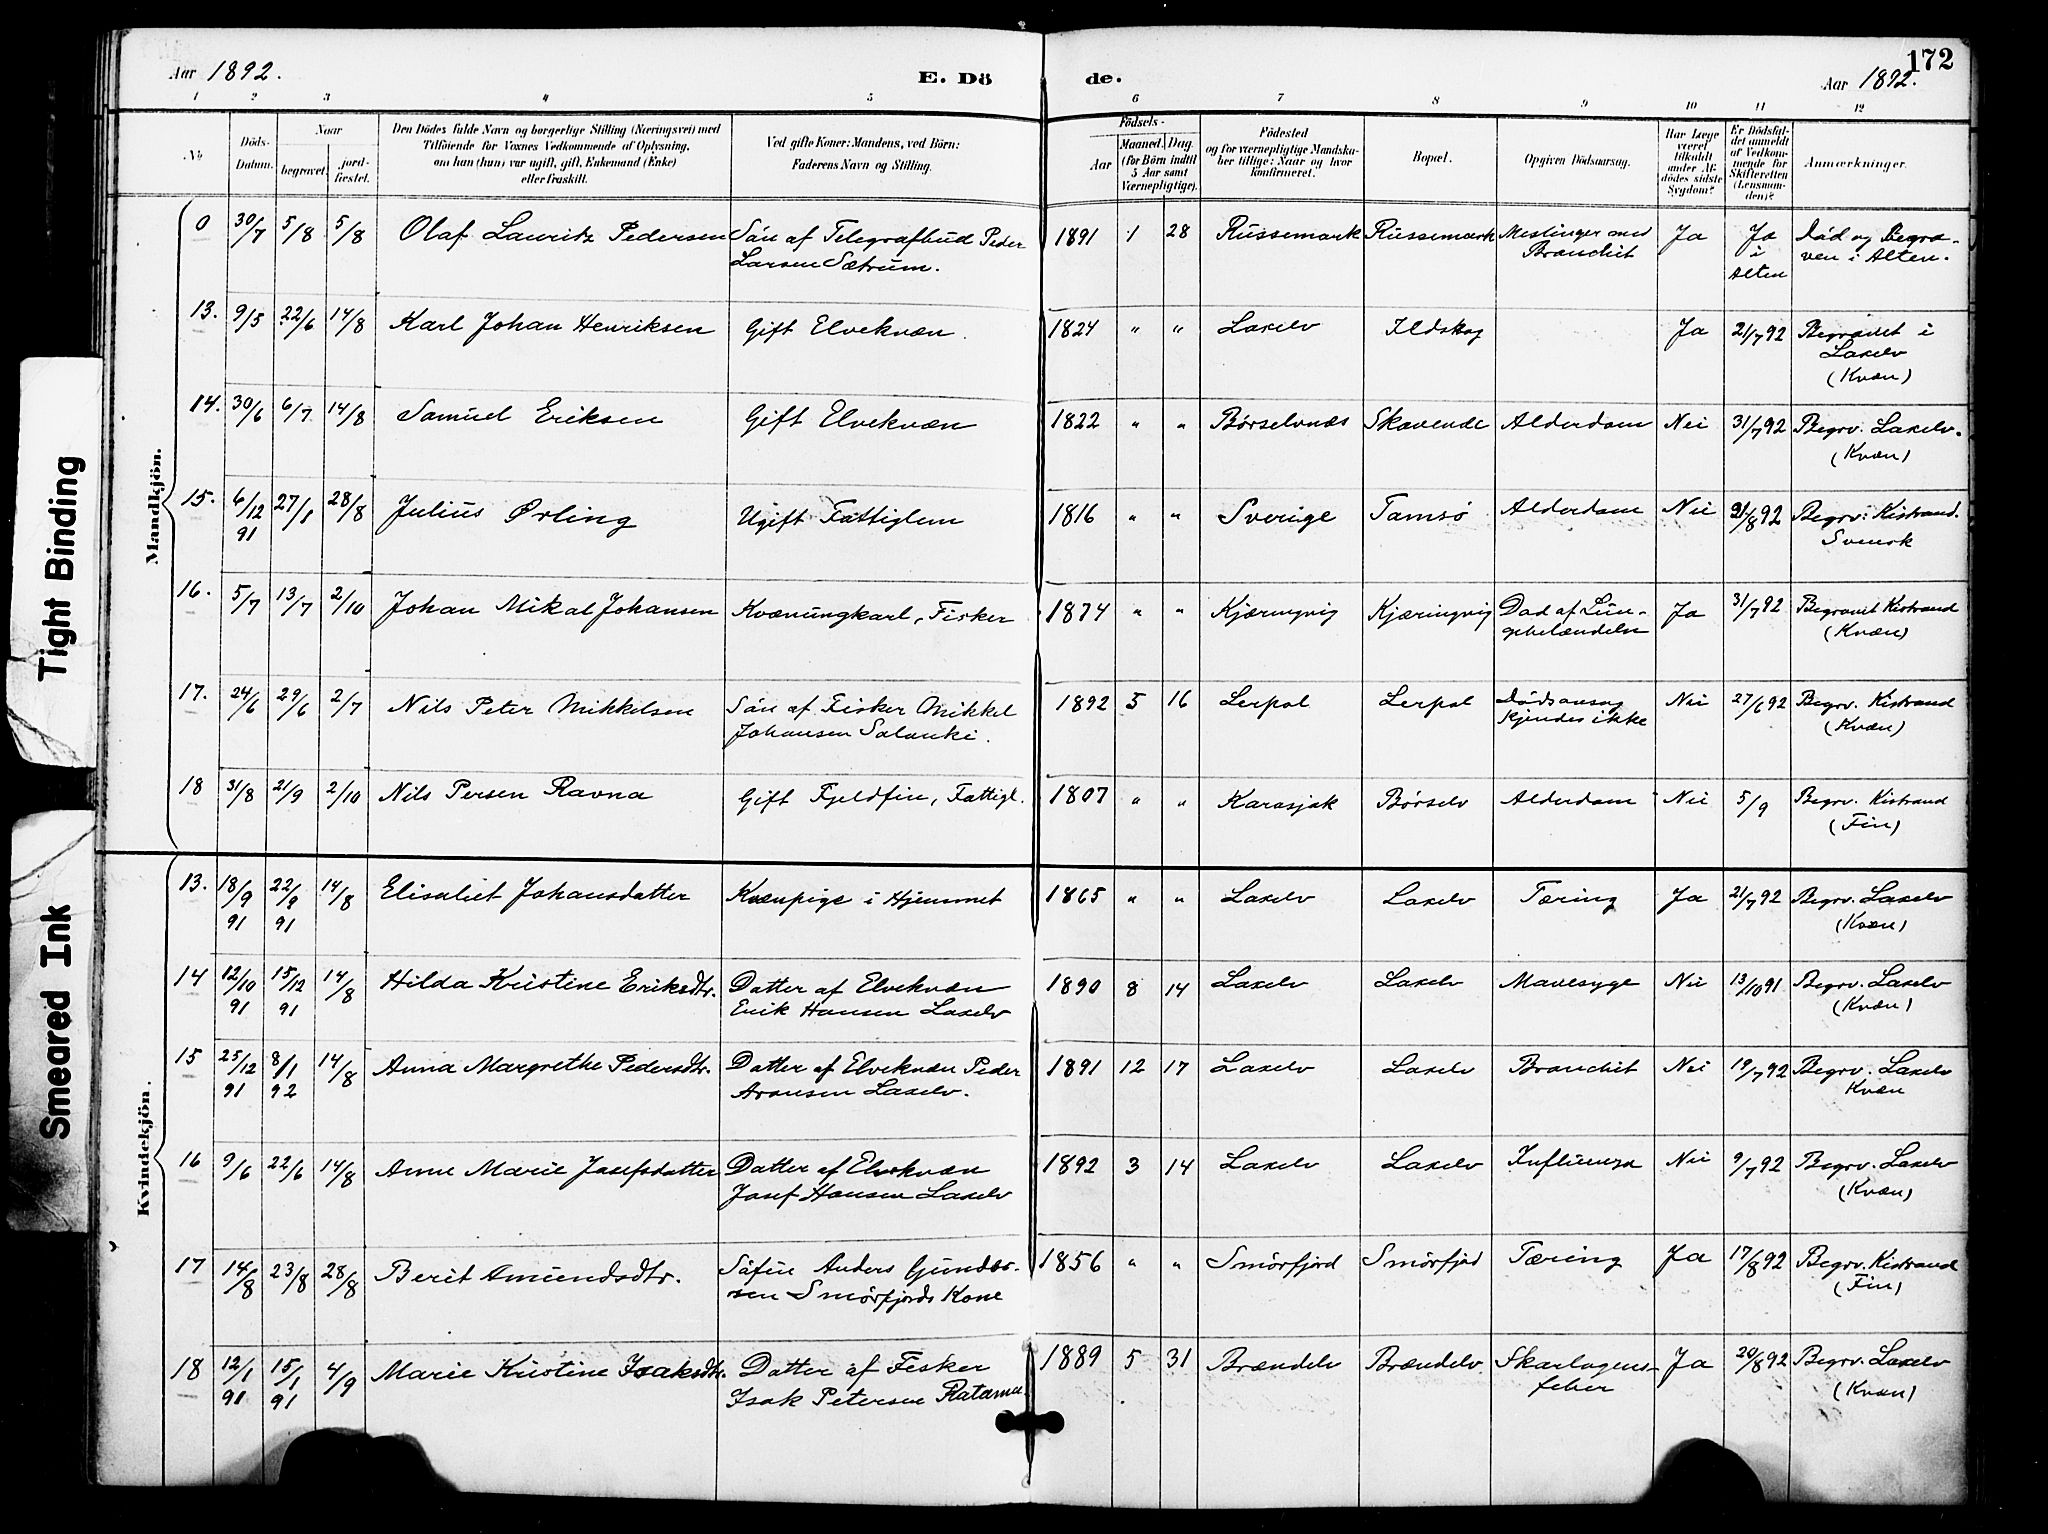 Aar 1892.
E. Dö
de.
Aar 1892.
172
1 2 3 4 5 6 7 8 9 10 11 12
No
Döds-
Datum.
Naar
begravet.
jord-
fæstet.
Den Dödes fulde Navn og borgerlige Stilling (Næringsvei) med
Tilföiende for Voxnes Vedkommende af Oplysning,
om han (hun) var ugift, gift, Enkemand (Enke)
eller fraskilt.
Ved gifte Koner: Mandens, ved Börn:
Faderens Navn og Stilling.
Födsels-
Aar
Maaned. Dag.
(for Börn indtil
5 Aar samt
Værnepligtige).
Födested
og for værnepligtige Mandska-
ber tillige: Naar og hvor
konfirmeret.
Bopæl.
Opgiven Dödsaarsag.
Har Læge
været
tilkaldt
under Af-
dödes sidste
Sygdom?
Er Dödsfal-
det anmeldt
af Vedkom-
mende for
Skifteretten
(Lensman-
den)?
Anmærkninger.
Mandkjön.
0 30/7 5/8 5/8 Olaf Lauritz Pedersen Sön af Telegrafbud Peder 1891 1 28 Russemark Russemark Meslinger med Ja Ja Död og begra-
Larsen Sætrum. Bronchit i ven i Alten.
Alten
13. 9/5 22/6 14/8 Karl Johan Henriksen Gift Elvekvæn. 1824 " " Laxelv Ildskog Ja 21/7 92 Begravet i
Laxelv
(Kvæn)
14. 30/6 6/7 14/8 Samuel Eriksen Gift Elvekvæn 1822 " " Børselvnæs Skovende Alderdom Nei 31/7 92 Begrv. Laxelv.
(Kvæn)
15. 6/12 27/1 28/8 Julius Ørling Ugift Fattiglem 1816 " " Sverige Tamsø Alderdom Nei 21/8 92 Begrv: Kistrand.
91 Svensk
16. 5/7 13/7 2/10 Johan Mikal Johansen Kvænungkarl, Fisker 1874 " " Kjæringvig Kjæringvig Död af Lun- Ja 31/7 92 Begravet Kistrand
gebetændelse (Kvæn)
17. 24/6 29/6 2/7 Nils Peter Mikkelsen Sön af Fisker Mikkel 1892 5 16 Lerpol Lerpol Dödsaarsag Nei 27/6 92 Begrv. Kistrand
Johansen Salanki. kjendes ikke (Kvæn)
18 31/8 21/9 2/10 Nils Persen Ravna Gift Fjeldfin, Fattigl. 1807 " " Karasjok Børselv Alderdom Nei 5/9 Begrv. Kistrand
(Fin)
Kvindekjön.
13. 18/9 22/9 14/8 Elisabet Johansdatter Kvænpige i Hjemmet 1865 " " Laxelv Laxelv Tæring Ja 21/7 92 Begrv. Laxelv
91 91 (Kvæn)
14 12/10 15/12 14/8 Hilda Kristine Eriksdtr. Datter af Elvekvæn 1890 8 14 Laxelv Laxelv Mavesyge Nei 13/10 91 Begrv. Laxelv
91 91 Erik Hansen Laxelv (Kvæn)
15 25/12 8/1 14/8 Anna Margrethe Pedersdtr. Datter af Elvekvæn Peder 1891 12 17 Laxelv Laxelv Bronchit Nei 19/7 92 Begrv. Laxelv
91 92 Aronsen Laxelv. Kvæn
16 9/6 22/6 14/8 Anne Marie Josefsdatter Datter af Elvekvæn 1892 3 14 Laxelv Laxelv Influenza Nei 9/7 92 Begrv. Laxelv
Josef Hansen Laxelv (Kvæn)
17 14/8 23/8 28/8 Berit Amundsdtr. Söfin Anders Gunder- 1856 " " Smörfjord Smörfjord Tæring Ja 17/8 92 Begrv. Kistrand
sen Smörfjords Kone (Fin)
18 12/1 15/1 4/9 Marie Kristine Isaksdtr. Datter af Fisker 1889 5 31 Brændelv Brændelv Skarlagens- Ja 20/8 92 Begrv. Laxelv
91 91 Isak Petersen Ratama. feber (Kvæn)
Tight Binding
Smeared Ink